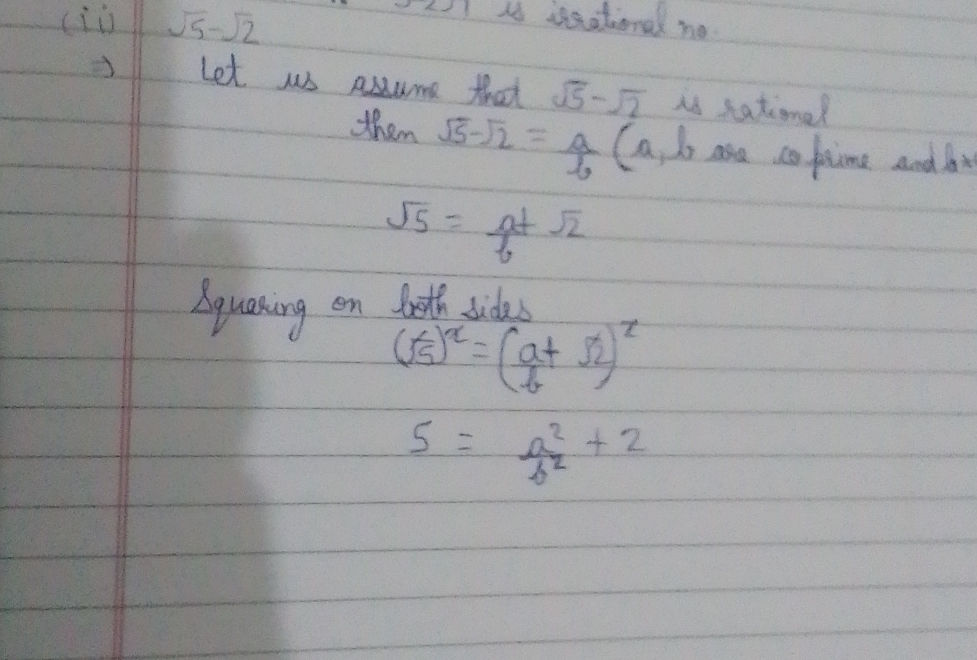 is irrational no.
(ii) √5-√2
⇒ Let us assume that √5-√2 is rational
then √5-√2 = a/b (a, b are coprime and b≠
√5 = a/b + √2
Squaring on both sides
(√5)² = (a/b + √2)²
5 = a²/b² + 2